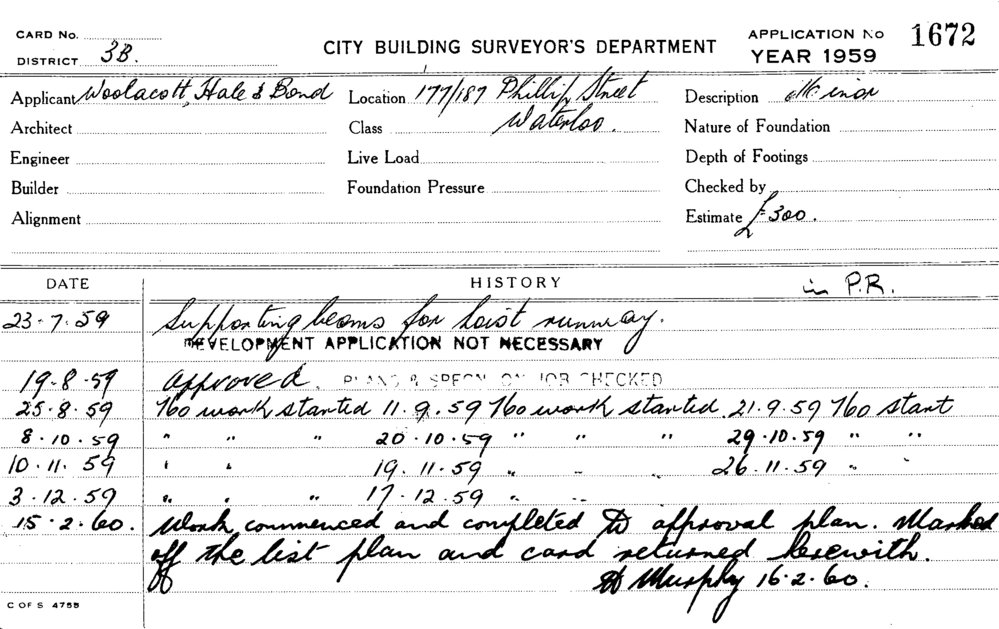 CARD No.
DISTRICT 3B.
CITY BUILDING SURVEYOR'S DEPARTMENT
APPLICATION No 1672
YEAR 1959
Applicant Woolacott, Hale & Bond Location 177/187 Phillip Street Description Minor
Architect Class Waterloo. Nature of Foundation
Engineer Live Load Depth of Footings
Builder Foundation Pressure Checked by
Alignment Estimate £300.
DATE HISTORY in P.R.
23-7.59 Supporting beams for hoist runway.
DEVELOPMENT APPLICATION NOT NECESSARY
19.8.59 Approved. PLANS & SPECN ON JOB CHECKED
25.8.59 No work started 11.9.59 No work started 21.9.59 No start
8.10.59 " " " 20.10.59 " " " 29.10.59 " "
10.11.59 " " 19.11.59 " " " 26.11.59 " "
3.12.59 " " " 17.12.59 " "
15.2.60. Work commenced and completed to approval plan. Marked
off the list plan and card returned herewith.
Murphy 16.2.60.
C OF S 4755